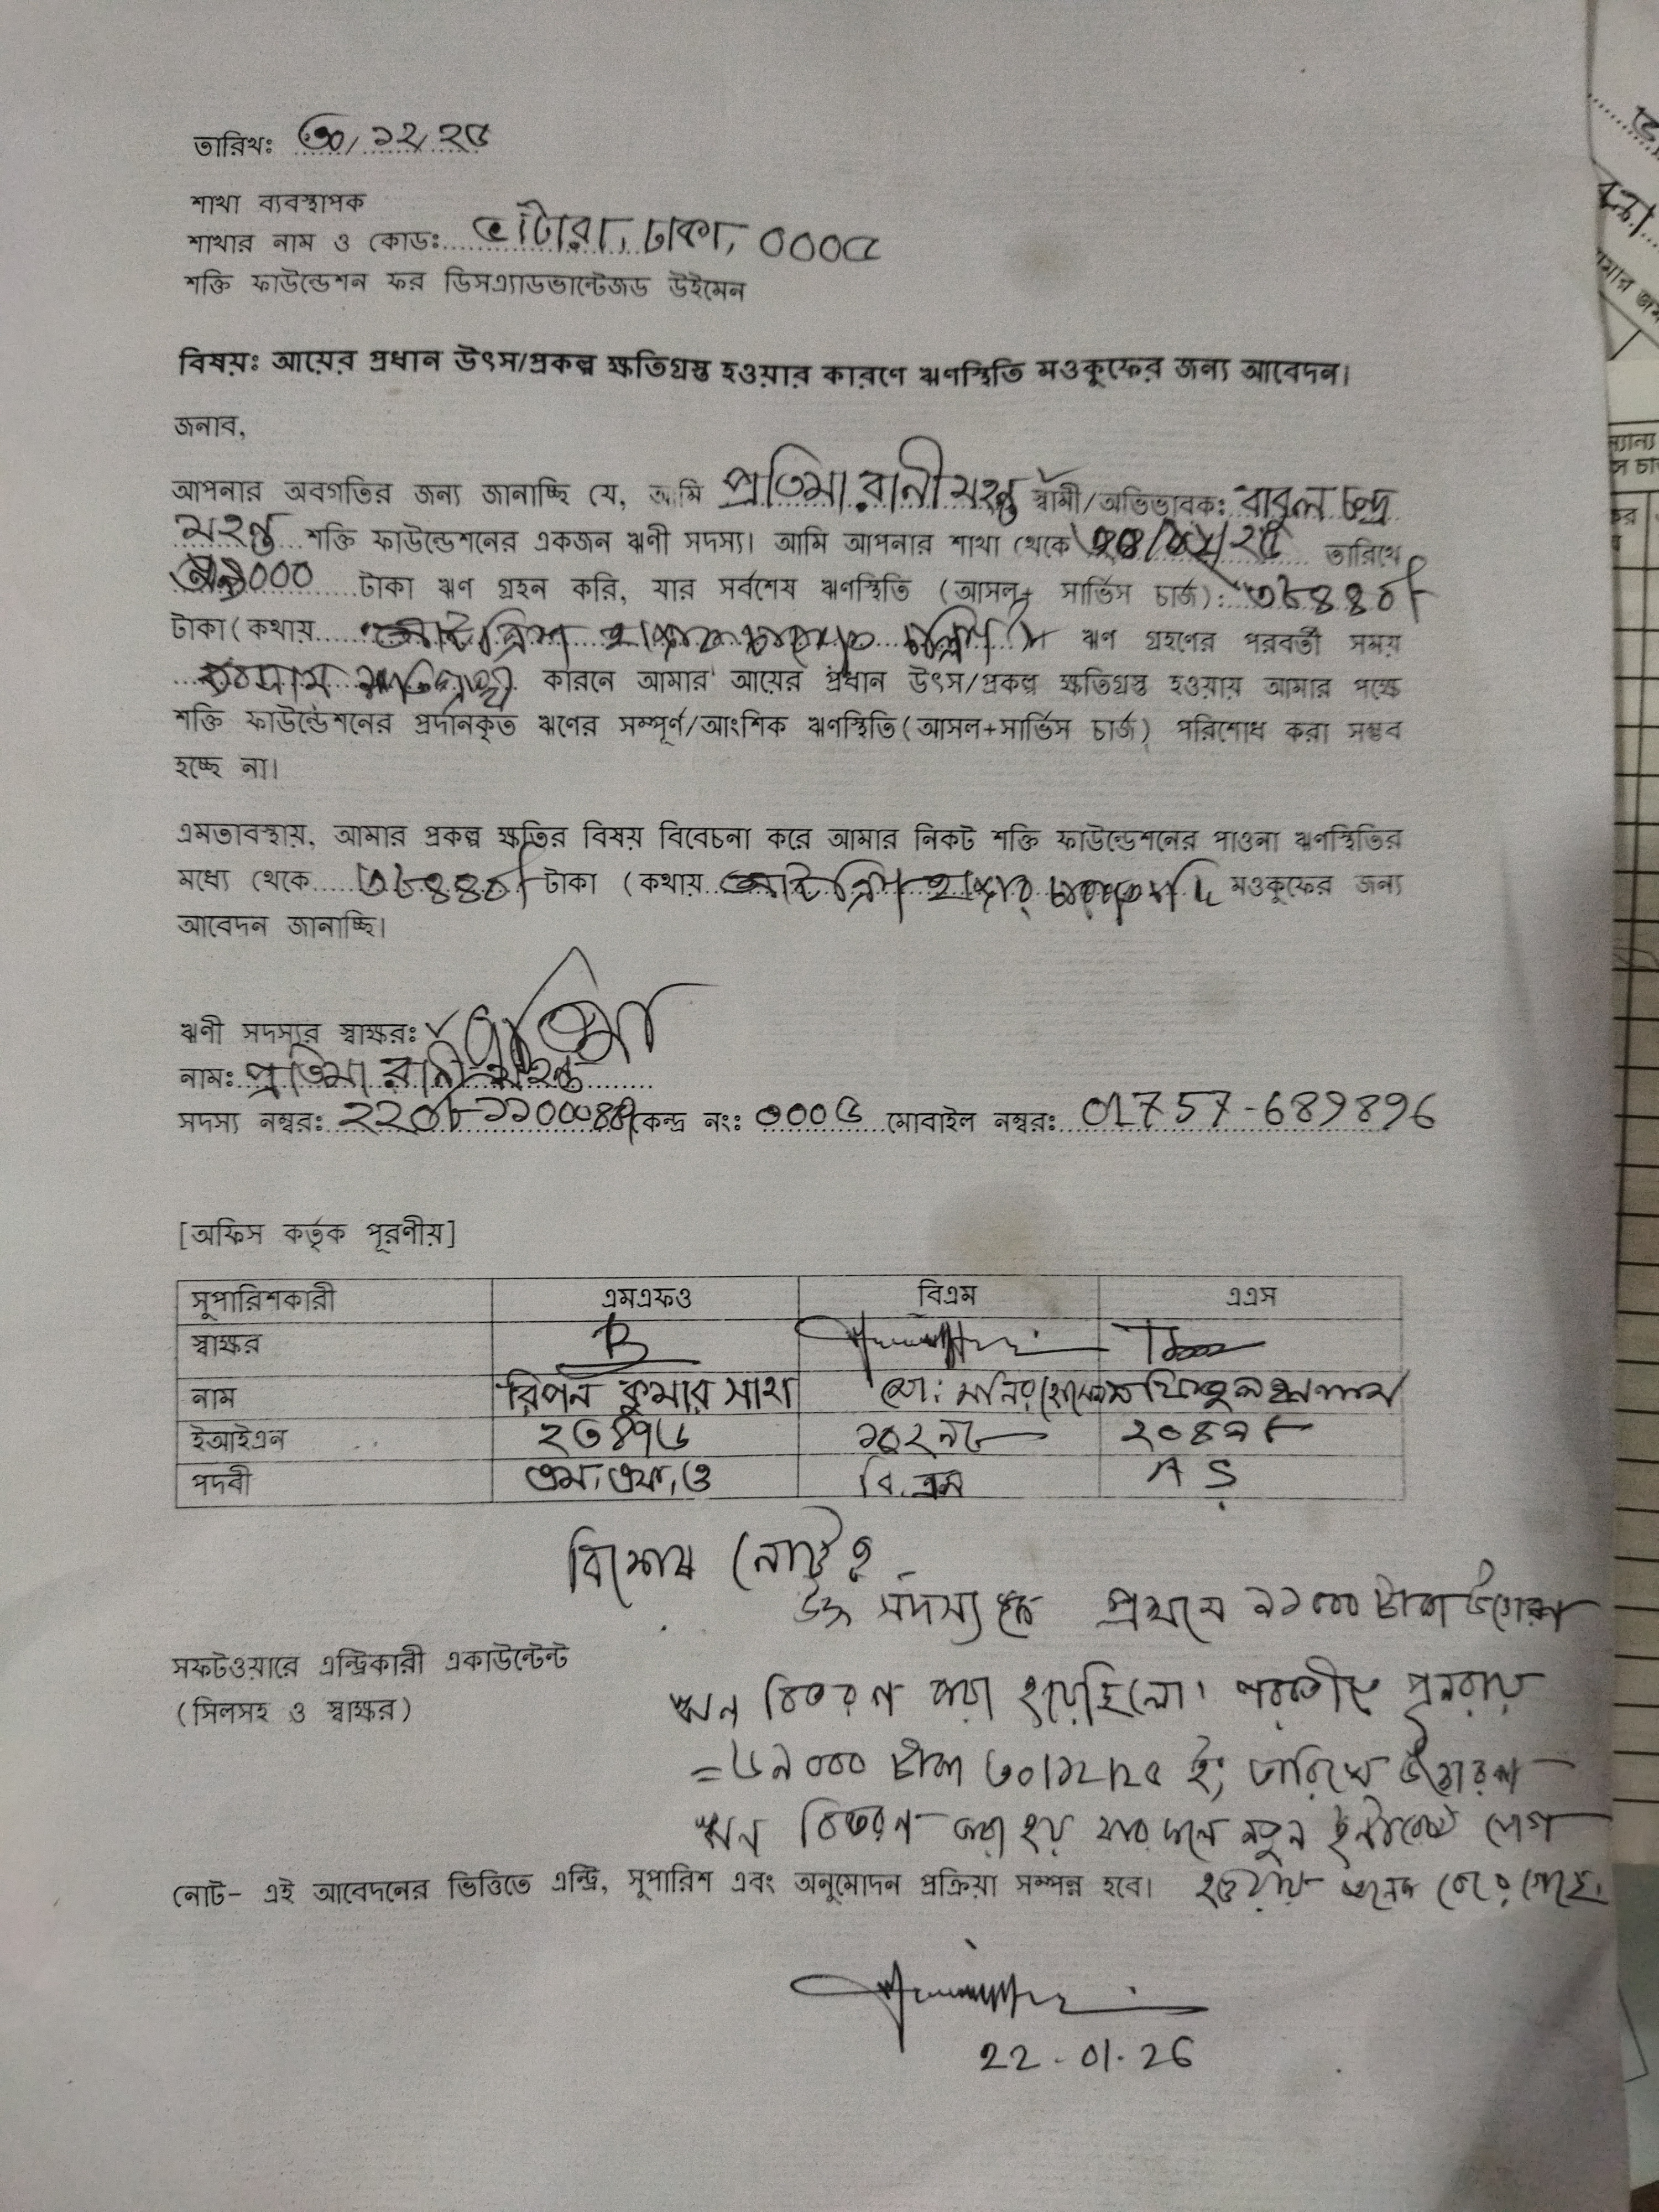 তারিখঃ ৩০/১২/২৫
শাখা ব্যবস্থাপক
শাখার নাম ও কোডঃ ভাটারা, ঢাকা, ০০০৫
শক্তি ফাউন্ডেশন ফর ডিসএ্যাডভান্টেজড উইমেন
বিষয়ঃ আয়ের প্রধান উৎস/প্রকল্প ক্ষতিগ্রস্ত হওয়ার কারণে ঋণস্থিতি মওকুফের জন্য আবেদন।
জনাব,
আপনার অবগতির জন্য জানাচ্ছি যে, আমি প্রতিমা রানী মহন্ত স্বামী/অভিভাবক: বাবুল চন্দ্র
মহন্ত শক্তি ফাউন্ডেশনের একজন ঋণী সদস্য। আমি আপনার শাখা থেকে তারিখে
টাকা ঋণ গ্রহন করি, যার সর্বশেষ ঋণস্থিতি (আসল+ সার্ভিস চার্জ): ৩৮৪৪৮
টাকা(কথায় আটত্রিশ হাজার ঋণ গ্রহণের পরবর্তী সময়
কারনে আমার আয়ের প্রধান উৎস/প্রকল্প ক্ষতিগ্রস্ত হওয়ায় আমার পক্ষে
শক্তি ফাউন্ডেশনের প্রদানকৃত ঋণের সম্পূর্ণ/আংশিক ঋণস্থিতি(আসল+সার্ভিস চার্জ) পরিশোধ করা সম্ভব
হচ্ছে না।
এমতাবস্থায়, আমার প্রকল্প ক্ষতির বিষয় বিবেচনা করে আমার নিকট শক্তি ফাউন্ডেশনের পাওনা ঋণস্থিতির
মধ্যে থেকে ৩৮৪৪৮ টাকা (কথায় আটত্রিশ হাজার মওকুফের জন্য
আবেদন জানাচ্ছি।
ঋণী সদস্যর স্বাক্ষরঃ প্রতিমা
নামঃ প্রতিমা রানী মহন্ত
সদস্য নম্বরঃ কেন্দ্র নংঃ ০০০৬ মোবাইল নম্বরঃ 01757-689896
[অফিস কর্তৃক পূরণীয়]
সুপারিশকারী এমএফও বিএম এএস
স্বাক্ষর
নাম রিপন কুমার সাহা মোঃ মনির হোসেন
ইআইএন ২৩৪৭৬
পদবী এম,এফ,ও বি.এম AS
বিশেষ নোটঃ
উক্ত সদস্যকে প্রথমে ২১০০০ টাকা
সফটওয়ারে এন্ট্রিকারী একাউন্টেন্ট
(সিলসহ ও স্বাক্ষর)
ঋন বিতরণ করা হয়েছিলো। পরবর্তীতে পুনরায়
=৬৯০০০ টাকা ৩০/১২/২৫ ইং তারিখে
ঋন বিতরণ করা হয় যার ফলে নতুন
নোট- এই আবেদনের ভিত্তিতে এন্ট্রি, সুপারিশ এবং অনুমোদন প্রক্রিয়া সম্পন্ন হবে। হওয়ায় অনেক বেড়ে গেছে।
22-01-26